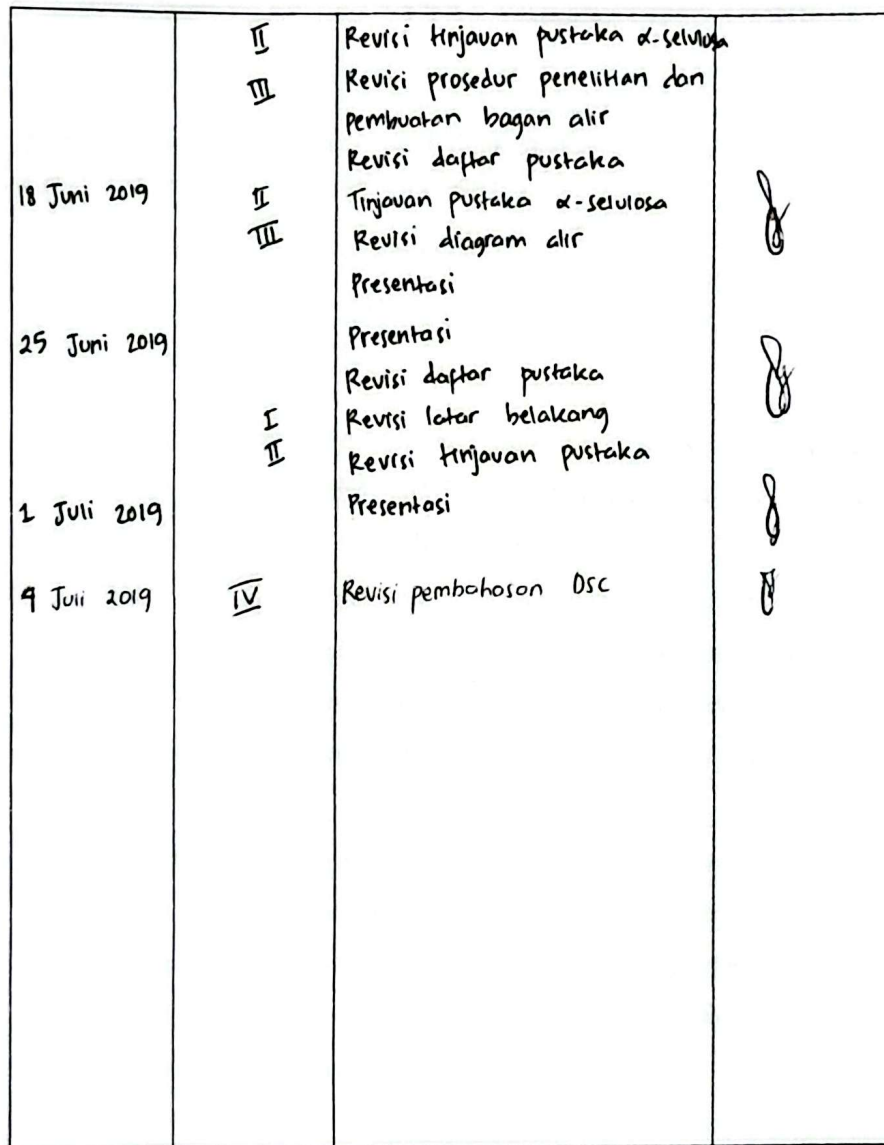 II Revisi tinjauan pustaka α-selulosa
III Revisi prosedur penelitian dan
pembuatan bagan alir
Revisi daftar pustaka
18 Juni 2019 II Tinjauan pustaka α-selulosa
III Revisi diagram alir
Presentasi
25 Juni 2019 Presentasi
Revisi daftar pustaka
I Revisi latar belakang
II Revisi tinjauan pustaka
1 Juli 2019 Presentasi
9 Juli 2019 IV Revisi pembahasan DSC